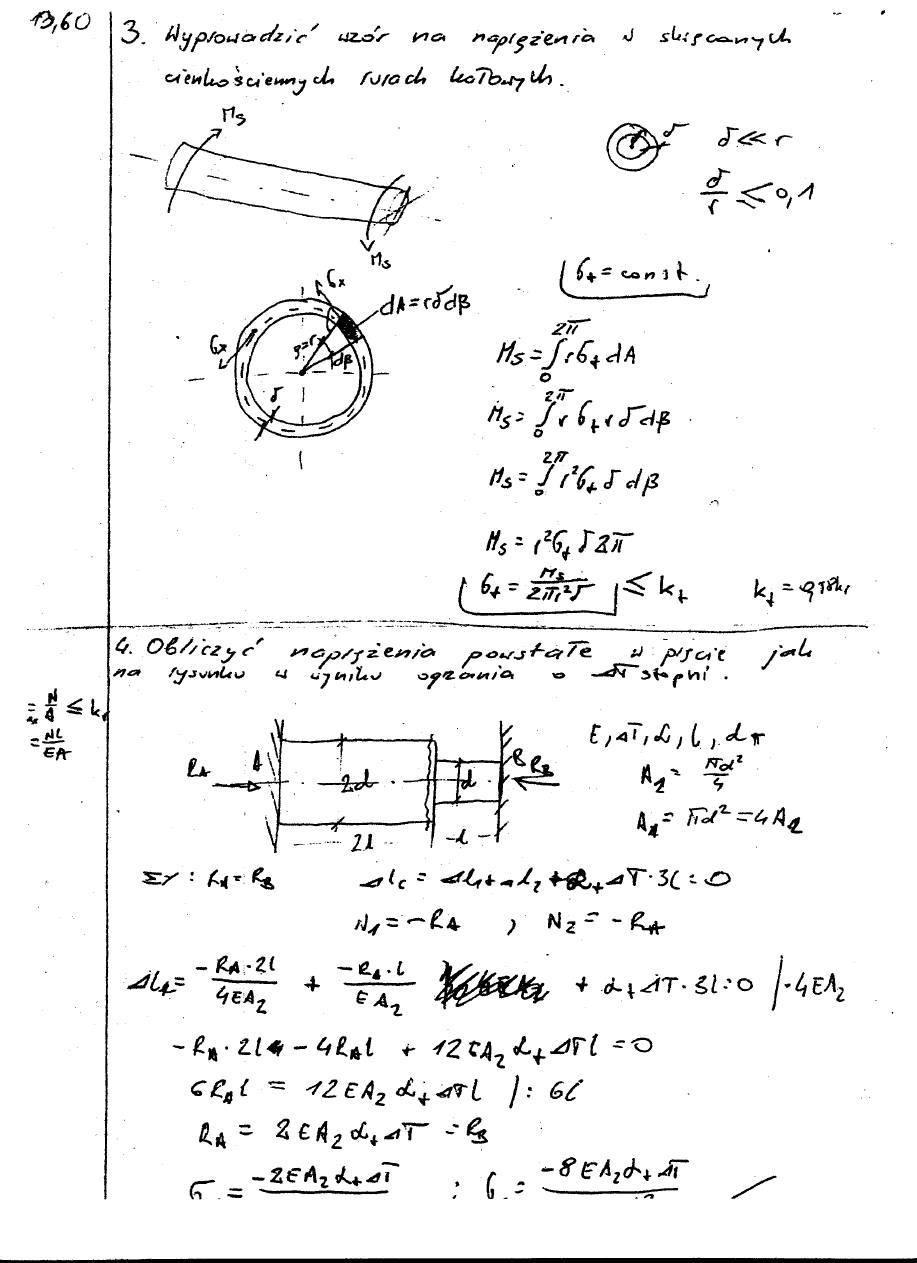 13,60
3. Wyprowadzić wzór na naprężenia w skręcanych
cienkościennych rurach kołowych.
Ms
Ms
δ
δ << r
δ/r ≤ 0,1
σt = const.
σx
σx
dA = rδdβ
ρ=r
dβ
δ
Ms = ∫₀^2π r σt dA
Ms = ∫₀^2π r σt r δ dβ
Ms = ∫₀^2π r² σt δ dβ
Ms = r² σt δ 2π
σt = Ms/2πr²δ ≤ kt
4. Obliczyć naprężenia powstałe w pręcie jak
na rysunku w wyniku ogrzania o ΔT stopni.
= N/A ≤ kr
= Nl/EA
RA
A
2d
d
B
RB
2l
l
E, ΔT, α, l, d
A2 = πd²/4
A1 = πd² = 4A2
ΣY : RA = RB
Δlc = Δl1 + Δl2 + αt ΔT · 3l = 0
N1 = -RA , N2 = -RA
-RA·2l/4EA2 + -RA·l/EA2 + αt ΔT · 3l = 0 | ·4EA2
-RA·2l - 4RAl + 12EA2 αt ΔTl = 0
6RAl = 12EA2 αt ΔTl | : 6l
RA = 2EA2 αt ΔT = RB
σ = -2EA2αtΔT ; σ = -8EA2αtΔT